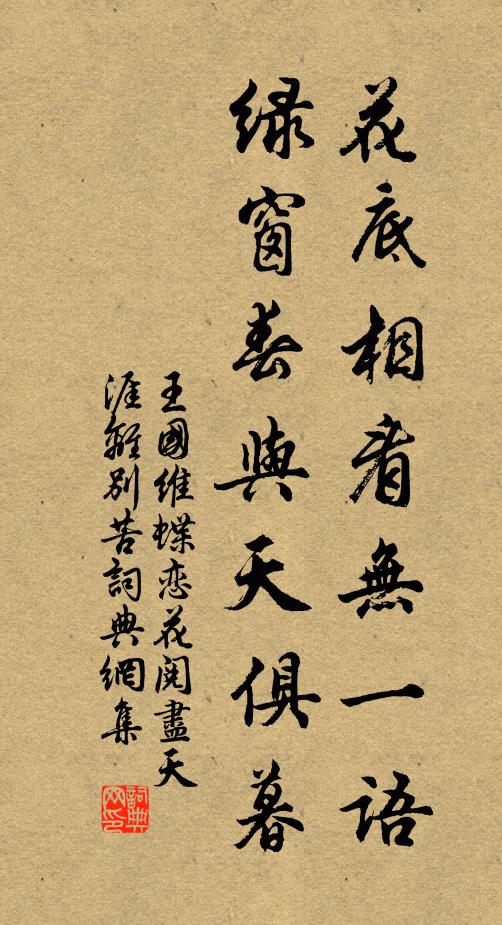 花底相看無一語
緑窗春與天俱暮
王國維蝶恋花閱盡天
涯離別苦詞典網集
詞典网印